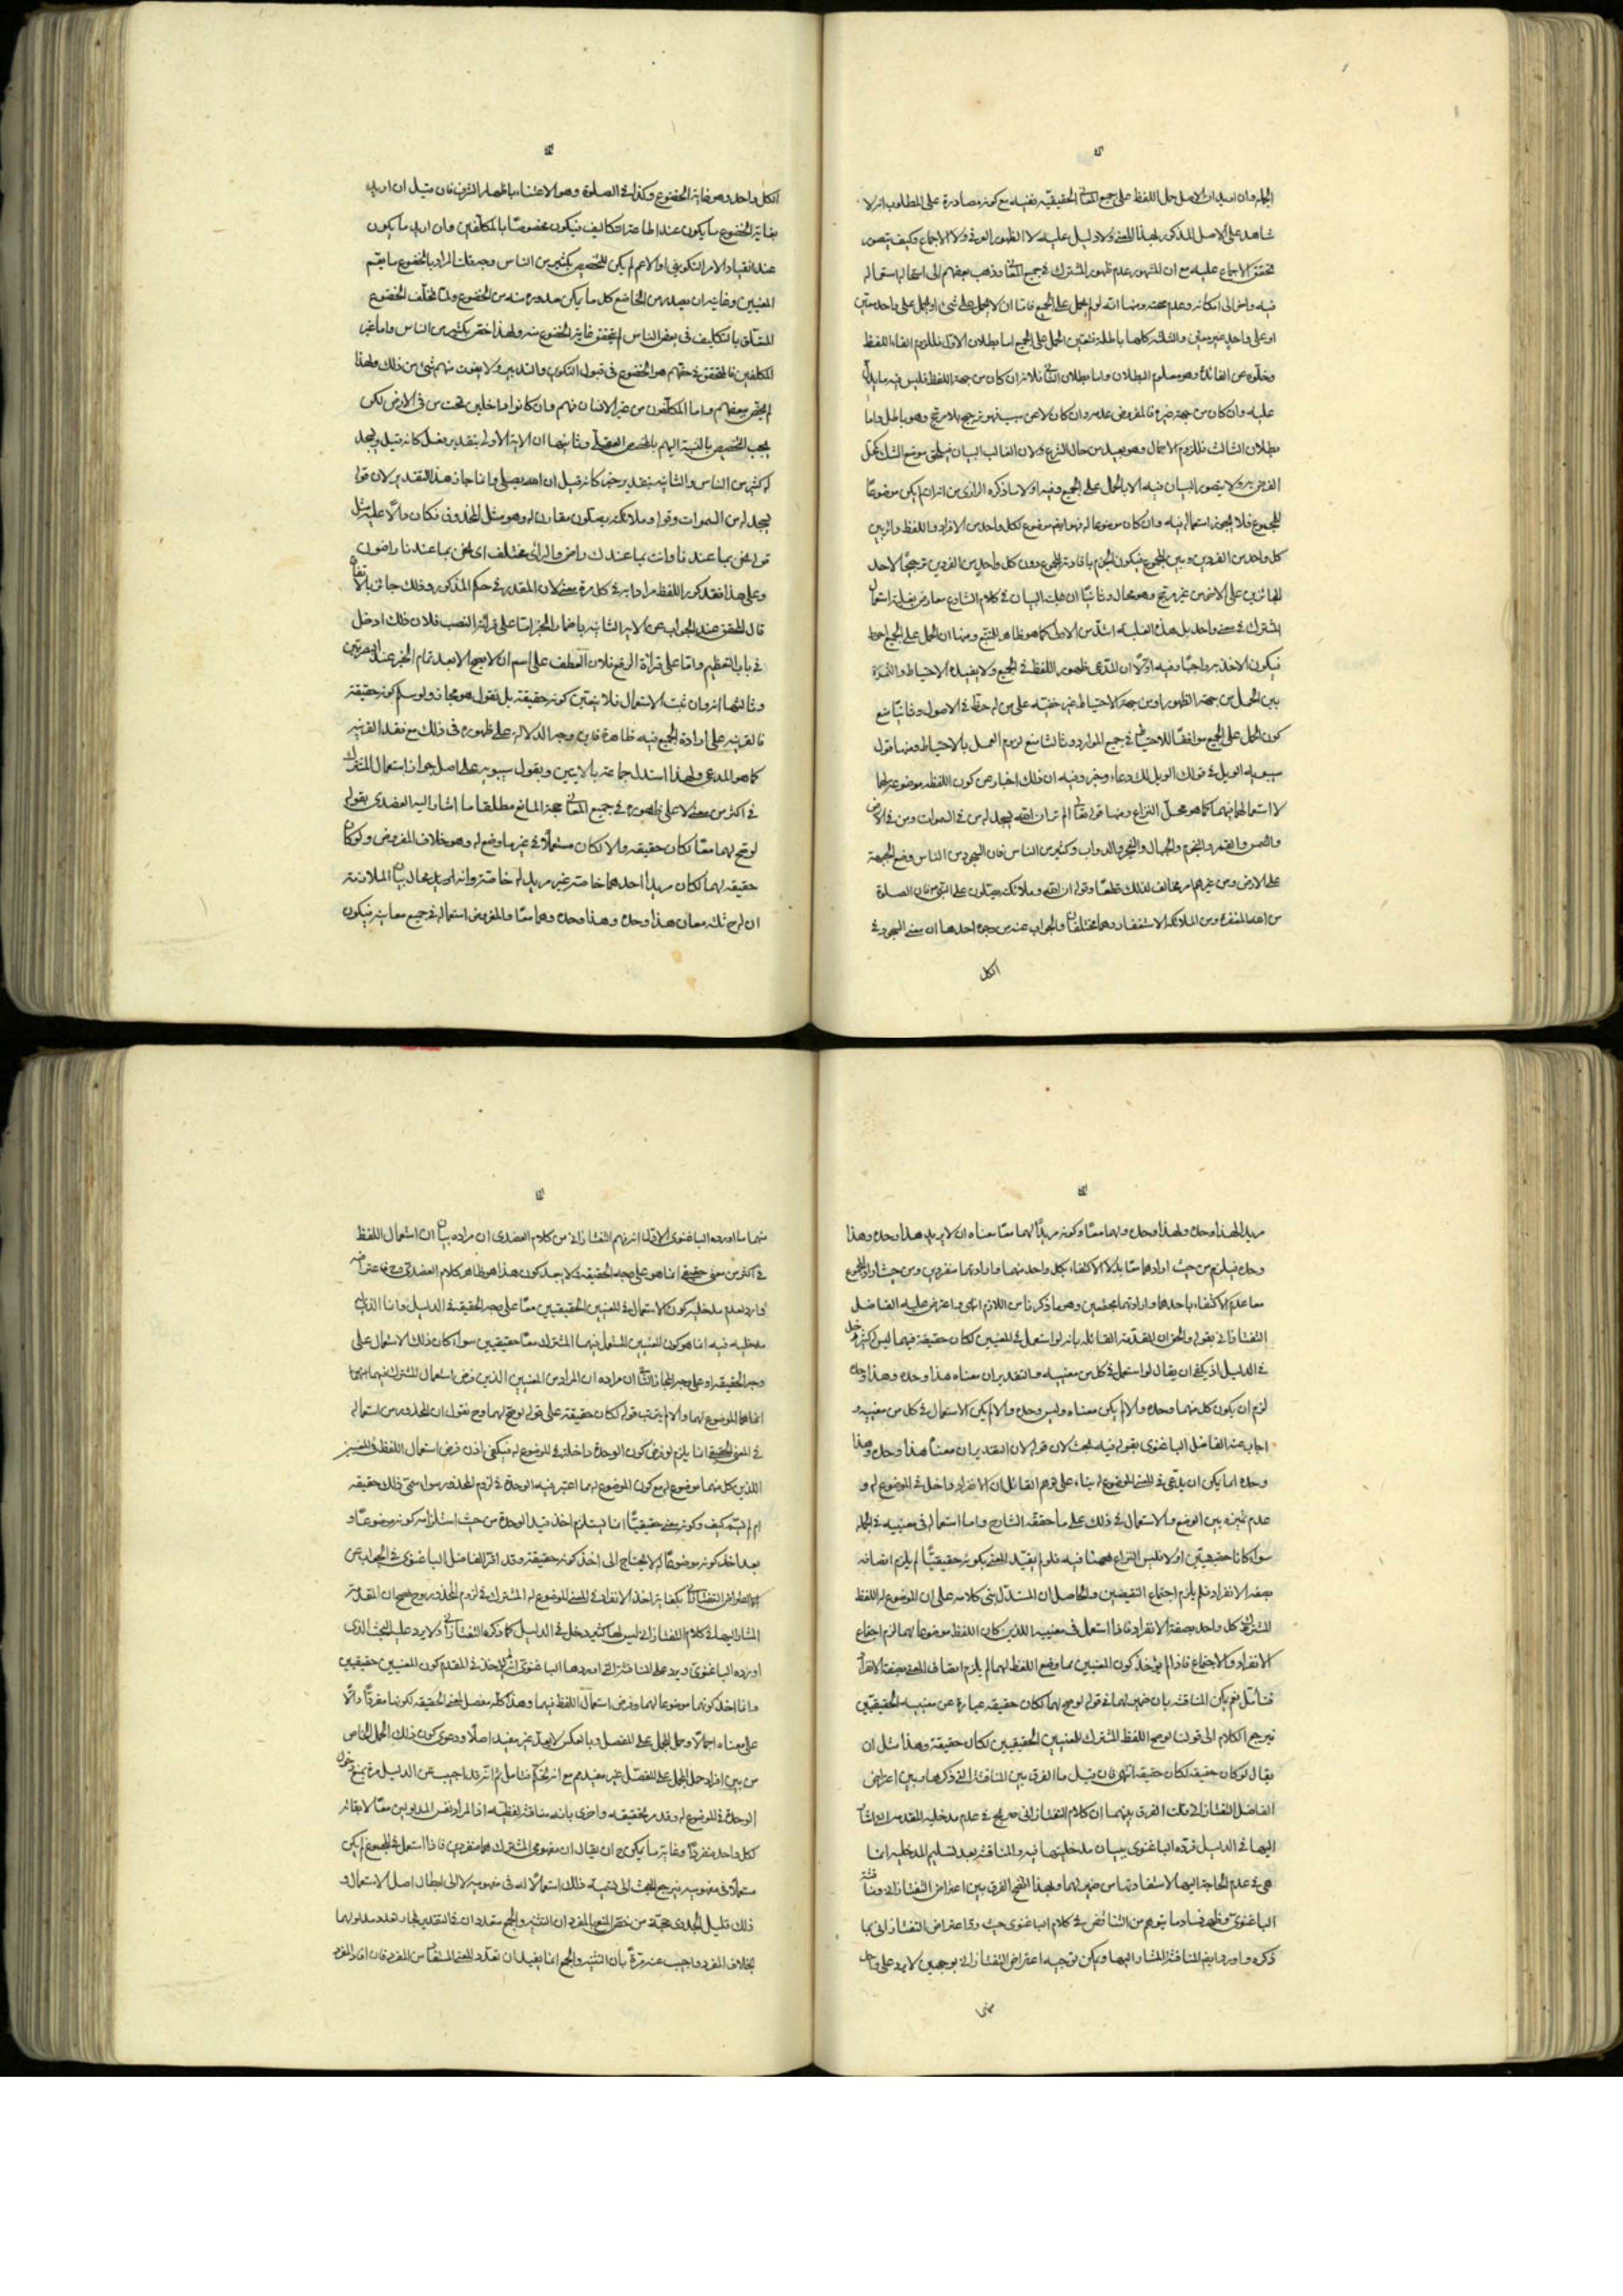 الجملة وان اريد ان الاصل حمل اللفظ على جميع المعاني الحقيقيّة ففيه مع كونه مصادرة على المطلوب انه لا
شاهد على الاصل المذكور بهذا المعنى ولا دليل عليه لا الظهور العرفي ولا الاجماع وكيف يتصور
تحقق الاجماع عليه مع ان المشهور عدم ظهور المشترك في جميع المعاني وذهب بعضهم الى استعماله
فيه واخر الى امكانه وعدم صحته ومنها انه لو لم يحمل على الجميع فاما ان لا يحمل على شئ او يحمل على واحد معيّن
او على واحد غير معيّن والثلثة كلها باطلة فتعيّن الحمل على الجميع اما بطلان الاوّل فللزوم الغاء اللفظ
وخلّوه عن الفائدة وهو معلوم البطلان واما بطلان الثاني فلانه ان كان من جهة اللفظ فليس فيه ما يدلّ
عليه وان كان من جهة غيره فالمفروض عدمه وان كان لا عن سبب فهو ترجيح بلا مرجّح وهو باطل واما
بطلان الثالث فللزوم الاجمال وهو بعيد من حال الشرع ولان الغالب البيان فيلحق موضع الشك بمحلّ
الفرض ولا يتصور البيان فيه الا بالحمل على الجميع وفيه اولا ما ذكره الرازى من انه ان لم يكن موضوعًا
للمجموع فلا يجوز استعماله فيه وان كان موضوعا له فهو ايضا موضوع لكل واحد من الافراد واللفظ دائر بين
كل واحد من الفردين وبين المجموع فيكون الجزم بافادته للمجموع دون كل واحد من الفردين ترجيحًا لاحد
الجائزين على الاخر من غير مرجّح وهو محال وثانيًا ان غلبة البيان في كلام الشارع معارض بغلبة استعمال
المشترك في معنى واحد بل هذه الغلبة اشدّ من الاولى كما هو ظاهر للمتتبع ومنها ان الحمل على الجميع احوط
فيكون الاخذ به واجبًا وفيه اوّلا ان المدّعى ظهور اللفظ في الجميع ولا يفيده الاحتياط والثمرة
بين الحمل من جهة الظهور او من جهة الاحتياط غير خفيّة على من له حظّ في الاصول وثانيًا منع
كون الحمل على الجميع موافقًا للاحتياط في جميع الموارد وثالثا منع لزوم العمل بالاحتياط ومنها قول
سيبويه الويل في قولك الويل لك دعاء وخبر وفيه ان ذلك اخبار عن كون اللفظ موضوعة لهما
لا استعمالها فيهما كما هو محلّ النزاع ومنها قوله تعالى الم تر ان الله يسجد له من في السموات ومن في الارض
والشمس والقمر والنجوم والجبال والشجر والدواب وكثير من الناس فان السجود من الناس وضع الجبهة
على الارض ومن غيرهم امر مخالف لذلك قطعًا وقوله ان الله وملائكته يصلّون على النبيّ فان الصلاة
من الله المغفرة ومن الملائكة الاستغفار وهما مختلفان والجواب عنه من وجوه احدها ان معنى السجود في
الكل
الكل واحد وهو غاية الخضوع وكذا في الصلوة وهو الاعتناء باظهار الشرف فان قيل ان اريد
بغاية الخضوع ما يكون عند اطاعة التكاليف فيكون مخصوصًا بالمكلّفين وان اريد ما يكون
عند انقياد الامر التكوينى او الاعم لم يكن للتخصيص بكثير من الناس وجه قلت المراد بالخضوع ما يعمّ
المعنيين وغايته ان يصدر من الخاضع كل ما يمكن صدوره منه من الخضوع ولمّا تخلّف الخضوع
المتعلّق بالتكاليف فى بعض الناس لم يتحقق غاية الخضوع منه ولهذا خصّ بكثير من الناس واما غير
المكلّفين فالمتحقق في حقّهم هو الخضوع فى قبول التكوين والتدبير ولا يفوت منهم شئ من ذلك ولهذا
لم يخصّ ببعضهم واما المكلّفون من غير الانسان فهم وان كانوا داخلين تحت من فى الارض لكن
يجب التخصيص بالنسبة اليهم بالمخصص العقلي وثانيها ان الاية الاولى بتقدير فعل كانه قيل ويسجد
له كثير من الناس والثانية بتقدير خبر كانه قيل ان الله يصلي وانما جاز هذا التقدير لان قوله
يسجد له من السموات وقوله وملائكته يصلّون مقارن له وهو مثل المحذوف فكان دالًا عليه مثل
قوله نحن بما عندنا وانت بما عندك راض والرائ مختلف اى نحن بما عندنا راضون
وعلى هذا فقد كرّر اللفظ مرادا به في كل مرة معنى لان المقدر في حكم المذكور وذلك جائز بالاتفاق
قال المحقق هذا الجواب عن الاية الثانية باضمار الخبر امّا على قرائة النصب فلان ذلك ادخل
في باب التعظيم وامّا على قرائة الرفع فلان العطف على اسم ان لا يصح الا بعد تمام الخبر عند البصريين
وثالثها انه وان ثبت الاستعمال فلا يتعيّن كونه حقيقة بل نقول هو مجاز ولو سلم كونه حقيقة
فالقرينة على ارادة الجميع فيه ظاهرة فاين وجه الدلالة على ظهوره فى ذلك مع فقد القرينة
كما هو المدعى ولهذا استدل جماعة بالايتين وبقول سيبويه على اصل جواز استعمال المشترك
في اكثر من معنى لا على ظهوره في جميع المعاني حجة المانع مطلقا ما اشار اليه العضدى بقوله
لو صحّ لهما معًا لكان حقيقة والا لكان مستعملًا في غير ما وضع له وهو خلاف المفروض ولو كان
حقيقة لهما لكان مريدا احدهما خاصة غير مريد له خاصة وانه محال بيان الملازمة
ان له ح ثلثة معان هذا وحده وهذا وحده وهما معًا والمفروض استعماله في جميع معانيه فيكون
مريدا لهذا وحده ولهذا وحده ولهما معًا وكونه مريدًا لهما معًا معناه ان لا يريد هذا وحده وهذا
وحده فيلزم من حيث ارادهما معًا بدلا الاكتفاء بكل واحد منهما وارادتهما منفردين ومن حيث اراد المجموع
معا عدم الاكتفاء باحدهما وارادتهما مجتمعين وهو ما ذكرنا من اللازم انتهى واعترض عليه الفاضل
التفتازانى بقوله والحق ان المقدّمة القائلة بانه لو استعمل في المعنيين لكان حقيقة فيهما ليس كثير دخل
في الدليل اذ يكفي ان يقال لو استعمل في كل من معنييه والتقدير ان معناه هذا وحده وهذا وحده
لزم ان يكون كل منهما وحده والا لم يكن معناه وليس وحده والا لم يكن الاستعمال في كل من معنييه و
اجاب عنه الفاضل الباغنوى بقوله فيه بحث لان قوله لان التقدير ان معناه هذا وحده وهذا
وحده انما يمكن ان يدّعى في المعنى الموضوع له بناء على توهم القائل ان الانفراد داخل في الموضوع له و
عدم تميزه بين الوضع والاستعمال في ذلك على ما حققه الشارح واما استعماله فى معنييه في الجملة
سواء كانا حقيقيّين او لا فليس النزاع ههنا فيه فلو لم يقيّد المعنى بكونه حقيقيًّا لم يلزم اتصافه
بصفة الانفراد فلم يلزم اجتماع النقيضين والحاصل ان المستدلّ بنى كلامه على ان الموضوع له اللفظ
المشترك كل واحد بصفة الانفراد فاذا استعمل فى معنييه اللذين كان اللفظ موضوعا لهما لزم اجتماع
الانفراد والاجتماع فاذا لم يؤخذ كون المعنيين مما وضع اللفظ لهما لم يلزم اتصاف المعنى بصفة الانفراد
فتأمّل نعم يمكن المناقشة بان ضمير لهما في قوله لو صح لهما لكان حقيقة عبارة عن معنييه الحقيقيّين
فيرجع الكلام الى قولنا لو صح اللفظ المشترك للمعنيين الحقيقيين لكان حقيقة وهذا مثل ان
يقال لو كان حقيقة لكان حقيقة انتهى فان قيل ما الفرق بين المناقشة التي ذكرها وبين اعتراض
الفاضل التفتازانى قلت الفرق بينهما ان كلام التفتازانى صريح في عدم مدخلية المقدمة المشار
اليها في الدليل فردّه الباغنوى ببيان مدخليتها فيه والمناقشة بعد تسليم المدخلية انما
هي في عدم الحاجة اليها لاستفادتها من ضمير لهما وبهذا اتضح الفرق بين اعتراض التفتازانى ومناقشة
الباغنوى وظهر فساد ما يتوهم من التناقض في كلام الباغنوى حيث ردّ اعتراض التفتازانى بما
ذكره واورد ايضا المناقشة المشار اليها ويمكن توجيه اعتراض التفتازانى بوجهين لا يرد على واحد
منهما
منهما ما اورده الباغنوى الاوّل انه فهم التفتازانى من كلام العضدى ان مراده بيان ان استعمال اللفظ
في اكثر من معنى حقيقى انما هو على وجه الحقيقة ولا يبعد كون هذا هو ظاهر كلام العضدى وح فاعتراضه
وارد لعدم مدخلية كون الاستعمال في المعنيين الحقيقيين معًا على وجه الحقيقة في الدليل وانما الذي له
مدخلية فيه انما هو كون المعنيين المستعمل فيهما المشترك معًا حقيقيين سواء كان ذلك الاستعمال على
وجه الحقيقة او على وجه المجاز الثاني ان مراده ان المراد من المعنيين الذين فرض استعمال المشترك فيهما معا
انما هما الموضوع لهما والا لم يترتب قوله لكان حقيقة على قوله لو صح لهما وح نقول ان المحذور من استعماله
في المعنى الحقيقى انما يلزم لو فرض كون الوحدة داخلة في الموضوع له فيكفى اذن فرض استعمال اللفظ فى المعنيين
اللذين كل منهما موضوع له مع كون الموضوع له مما اعتبر فيه الوحدة في لزوم المحذور سواء سمّى ذلك حقيقة
ام لم يسمّ كيف وكونه معنى حقيقيًّا انما يستلزم اخذ قيد الوحدة من حيث استلزامه كونه موضوعًا و
بعد اخذ كونه موضوعًا له لا يحتاج الى اخذ كونه حقيقة وقد اقرّ الفاضل الباغنوى في الجواب عن
اعتراض التفتازانى بكفاية اخذ الانفراد في المعنى الموضوع له المشترك في لزوم المحذور وح صح ان المقدمة
المشار اليها في كلام التفتازانى ليس لها كثير دخل في الدليل كما ذكره التفتازانى ولا يرد عليه البحث الذى
اورده الباغنوى ويرد على المناقشة التى اوردها الباغنوى انه لم يؤخذ في المقدم كون المعنيين حقيقيين
وانما اخذ كونهما موضوعا لهما وفرض استعمال اللفظ فيهما وهذا كله مفصل لمعنى الحقيقة لكونها مفردًا دالًا
على معناه اجمالًا وحمل المجمل على المفصل وبالعكس لا يعدّ غير مفيد اصلًا ودعوى كون ذلك الحمل الخاص
من بين افراد حمل المجمل على المفصّل غير مفيد مع انه تحكّم فتامل ثم انّه قد اجيب عن الدليل مرة بمنع دخول
الوحدة في الموضوع له وقد مر تحقيقه واخرى بانه مناقشة لفظيّة اذ المراد نفس المدلولين معًا لا بقائه
لكل واحد منفردًا وغاية ما يمكن ح ان يقال ان مفهومى المشترك هما منفردين فاذا استعمل في المجموع لم يكن
مستعملًا فى مفهوميه فيرجع البحث الى تسمية ذلك استعمالًا له فى مفهوميه لا الى ابطال اصل الاستعمال و
ذلك قليل الجدوى حجة من خصّ المنع بالمفرد ان التثنية والجمع متعددان في التقدير فجاز تعدد مدلولهما
بخلاف المفرد واجيب عنه مرّةً بأن التثنية والجمع انما يفيدان تعدد للمعنى المستفاد من المفرد فان افاد المفرد